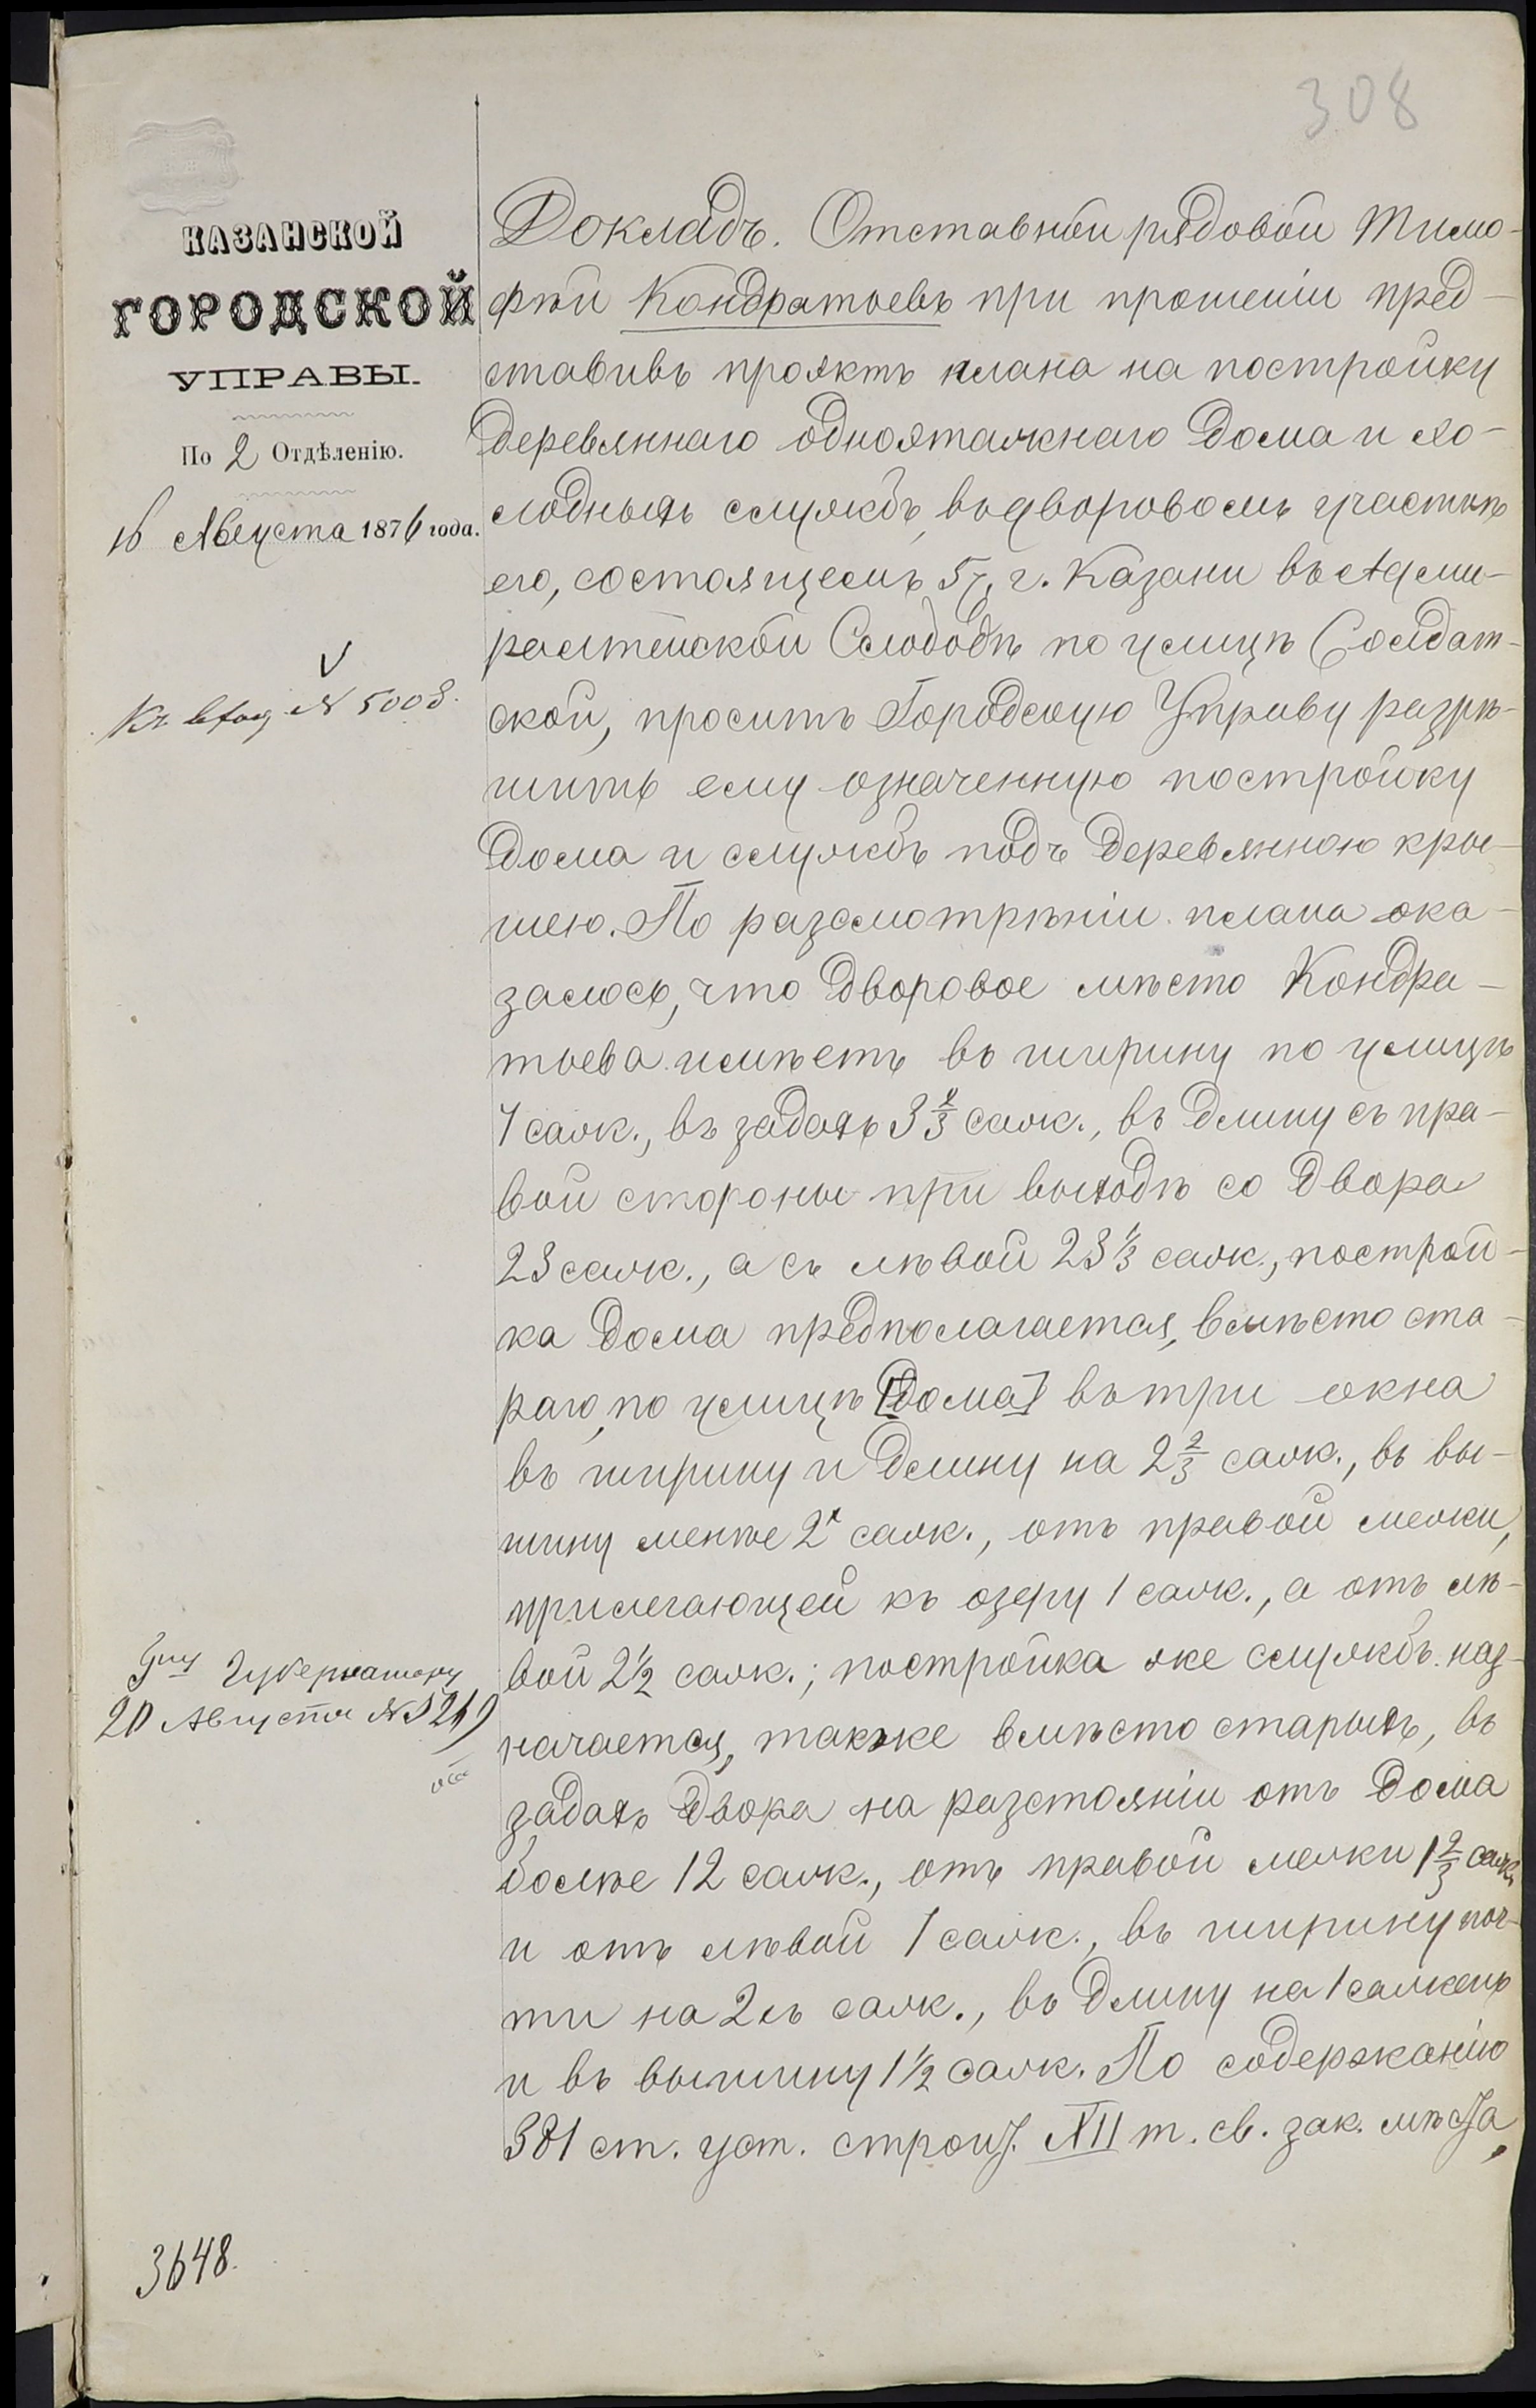 308
КАЗАНСКОЙ
ГОРОДСКОЙ
УПРАВЫ.
По 2 Отдѣленію.
16 Августа 1876 года.
Къ вход № 5008.
Докладъ. Отставной рядовой Тимо-
фѣй Кондратьевъ при прошеніи пред-
ставивъ проэктъ плана на постройку
деревяннаго одноэтажнаго дома и хо-
лодныхъ службъ, въ дворовомъ участкѣ
его, состоящемъ въ г. Казани въ Адми-
ралтейской Слободѣ по улицѣ Солдат-
ской, проситъ Городскую Управу разрѣ-
шить ему означенную постройку
дома и службъ подъ деревянною кры-
шею. По разсмотрѣніи плана ока-
залось, что дворовое мѣсто Кондра-
тьева имѣетъ въ ширину по улицѣ
7 саж., въ задахъ 3 2/3 саж., въ длину съ пра-
вой стороны при выходѣ со двора
23 саж., а съ лѣвой 23 1/3 саж., построй-
ка дома предполагается, вмѣсто ста-
раго, по улицѣ [дома] въ три окна
въ ширину и длину на 2 2/3 саж., въ вы-
шину менѣе 2х саж., отъ правой межи,
прилегающей къ озеру 1 саж., а отъ лѣ-
вой 2 1/2 саж.; постройка же службъ наз-
начается, также вмѣсто старыхъ, въ
задахъ двора на разстояніи отъ дома
болѣе 12 саж., отъ правой межи 1 2/3 саж.
и отъ лѣвой 1 саж., въ ширину поч-
ти на 2 хъ саж., въ длину на 1 сажень
и въ вышину 1 1/2 саж. По содержанію
381 ст. уст. строит. XII т. св. зак. мѣста,
Губернатору
20 Августа № 5269
3648.